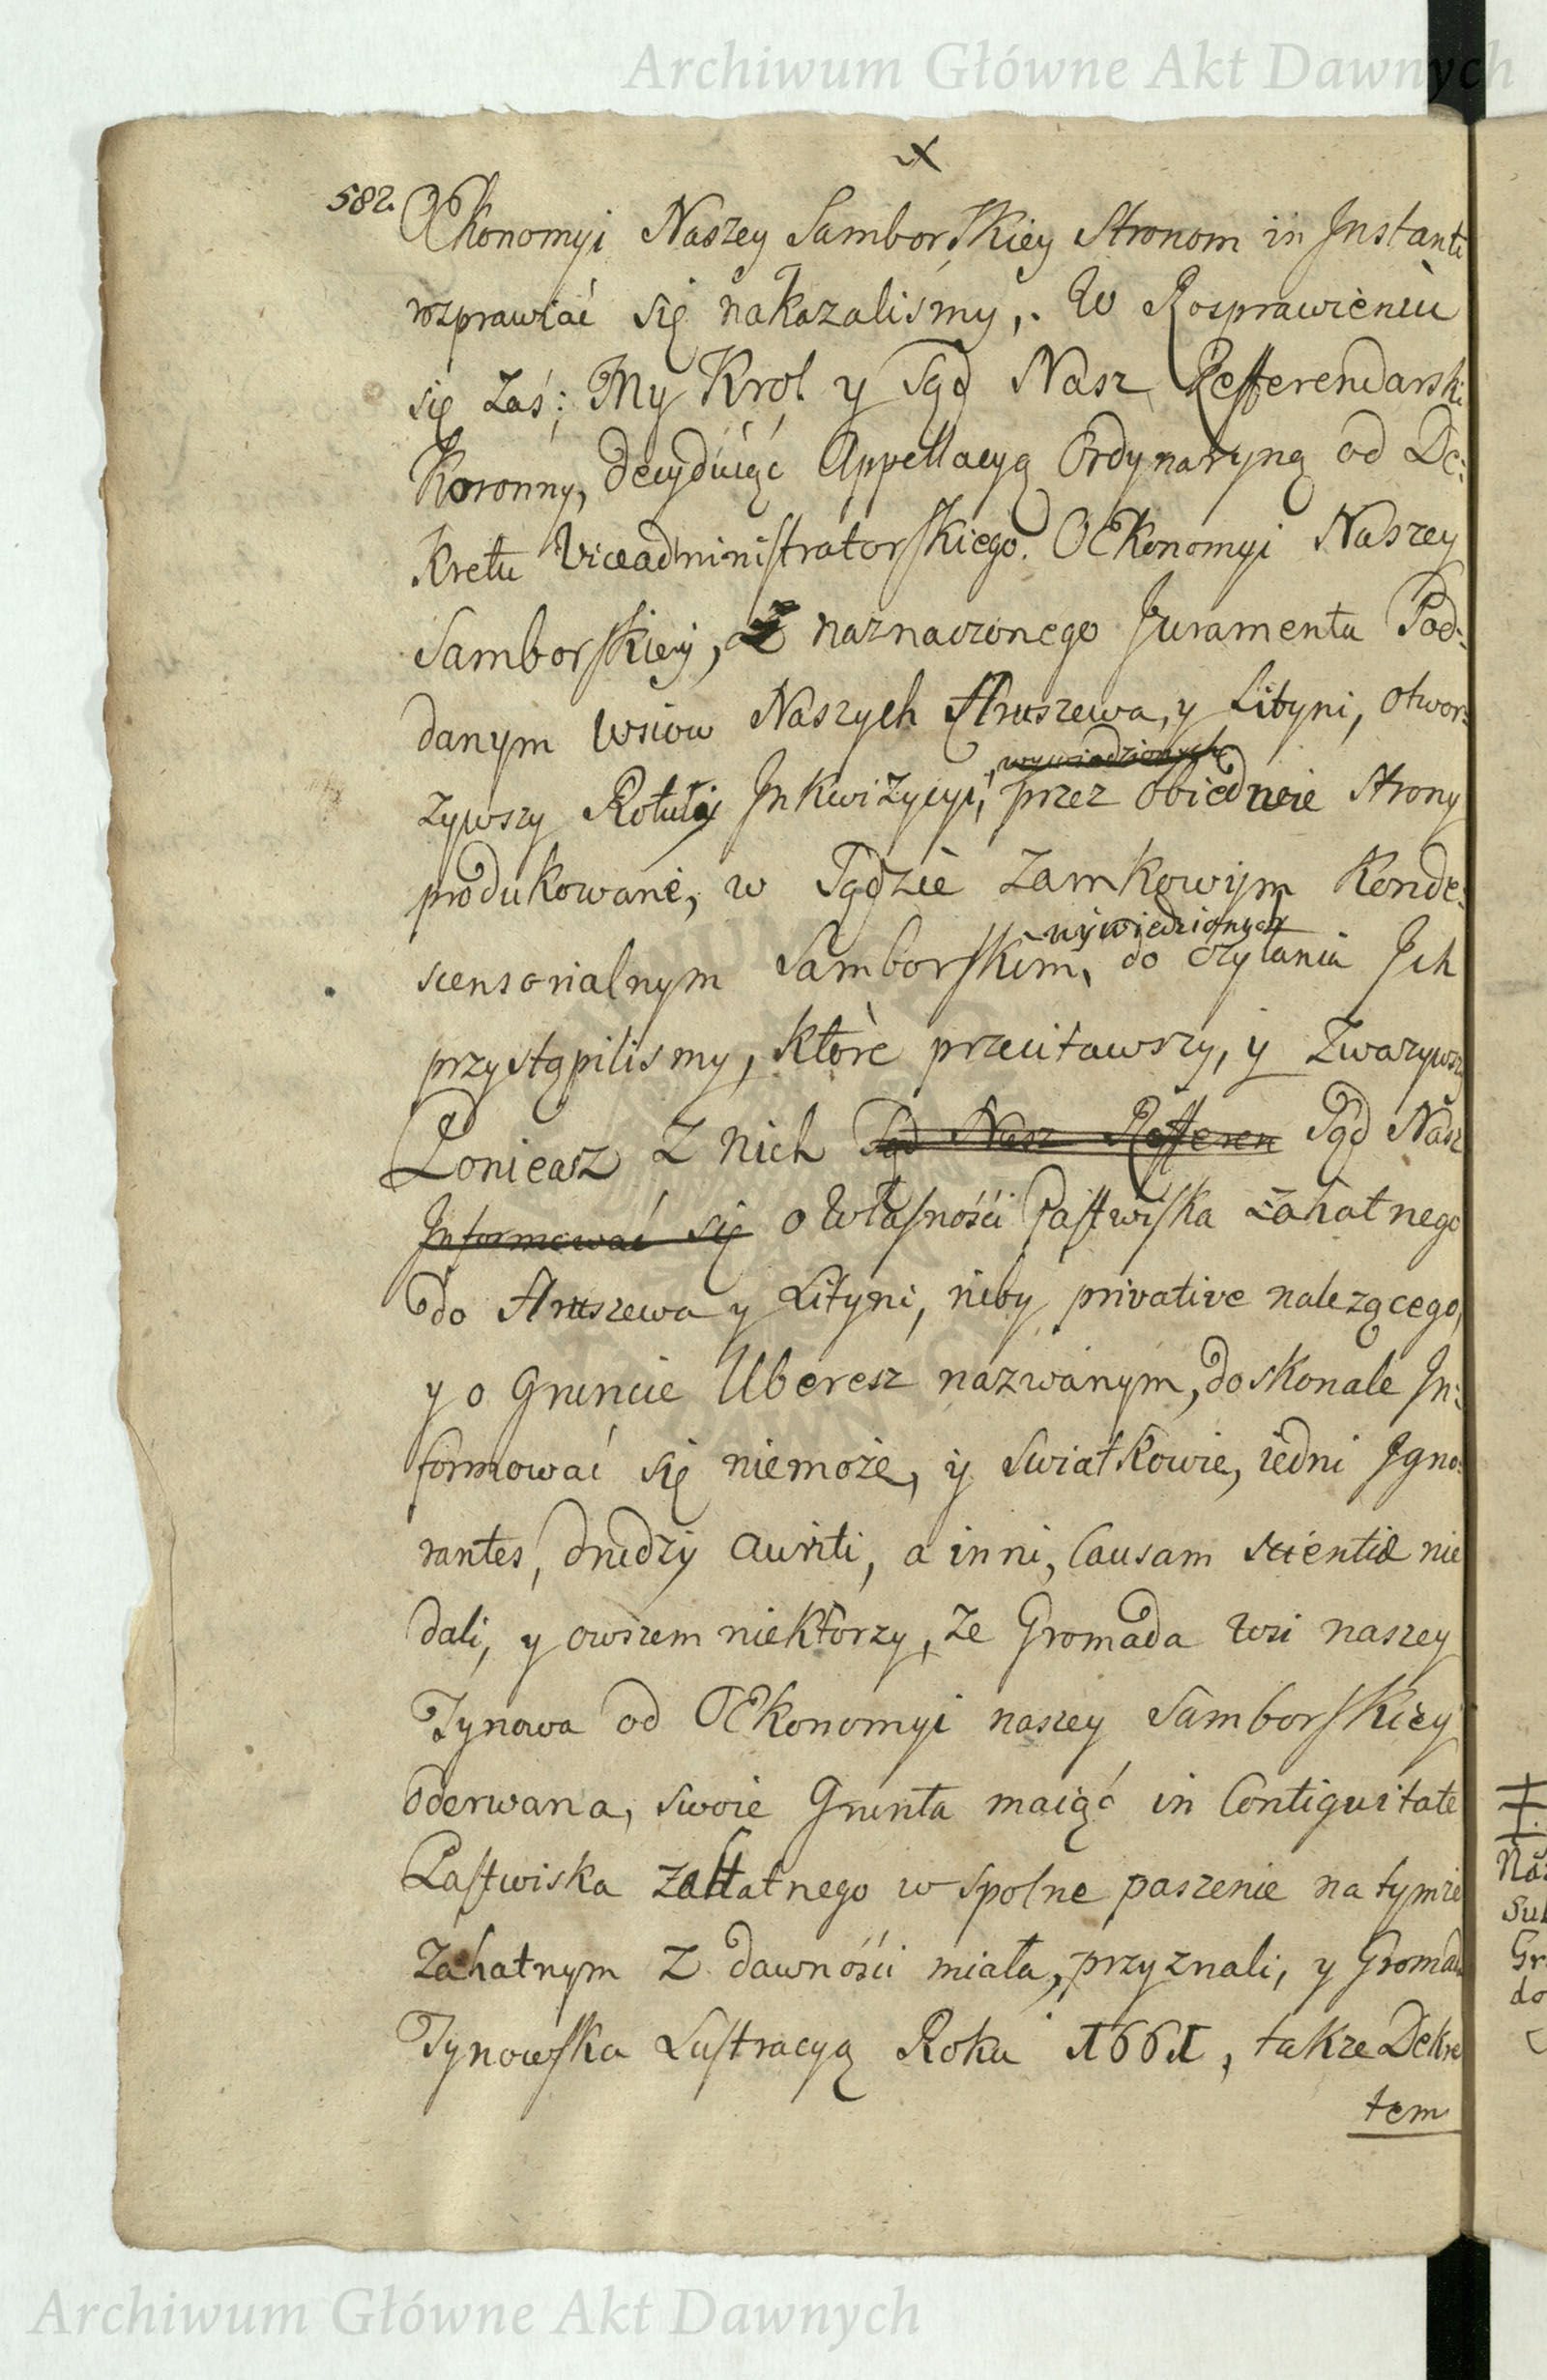 Archiwum Główne Akt Dawnych
x
582. OEkonomyi Naszey Samborskiey Stronom in Instanti
rozprawiać się nakazaliśmy,. W Rosprawieniu
się zaś; My Krol y Sąd Nasz Refferendarski
Koronny, decyduiąc Appellacyą Ordynaryiną od De:
kretu Viceadministratorskiego. OEkonomyi Naszey
Samborskiey, Z naznaczonego Juramentu Pod:
danym wsiow Naszych Hruszewa, y Lityni, otwor:
wywiedzionych
zywszy Rotuły Inkwizycyi, przez obiedwie strony
produkowane, w Sądzie Zamkowym Konde:
wywiedzionych
scensorialnym Samborskim, do czytania Ich
przystąpilismy, ktore przeczytawszy, y zwazywszy
Poniewaz z nich Sąd Nasz Refferen Sąd Nasz
Informować się o Własności Pastwiska zahatnego
do Hruszewa y Lityni, niby privative nalezącego,
y o Gruncie Uberesz nazwanym, doskonale In:
formować się niemoże, y swiatkowie, iedni Igno:
rantes, drudzy auriti, a inni, Causam scientiæ nie
dali, y owszem niektorzy, ze Gromada wsi naszey
Tynowa od OEkonomyi naszey Samborskiey
oderwana, swoie Grunta maiąć in Contiguitate
Pastwiska zahatnego wspolne paszenie na tymze
Zahatnym z dawności miała, przyznali, y Gromada
Tynowska Lustracyą Roku 1661, takze Dekre
tem
Na:
Sub
Gr
do
Archiwum Główne Akt Dawnych